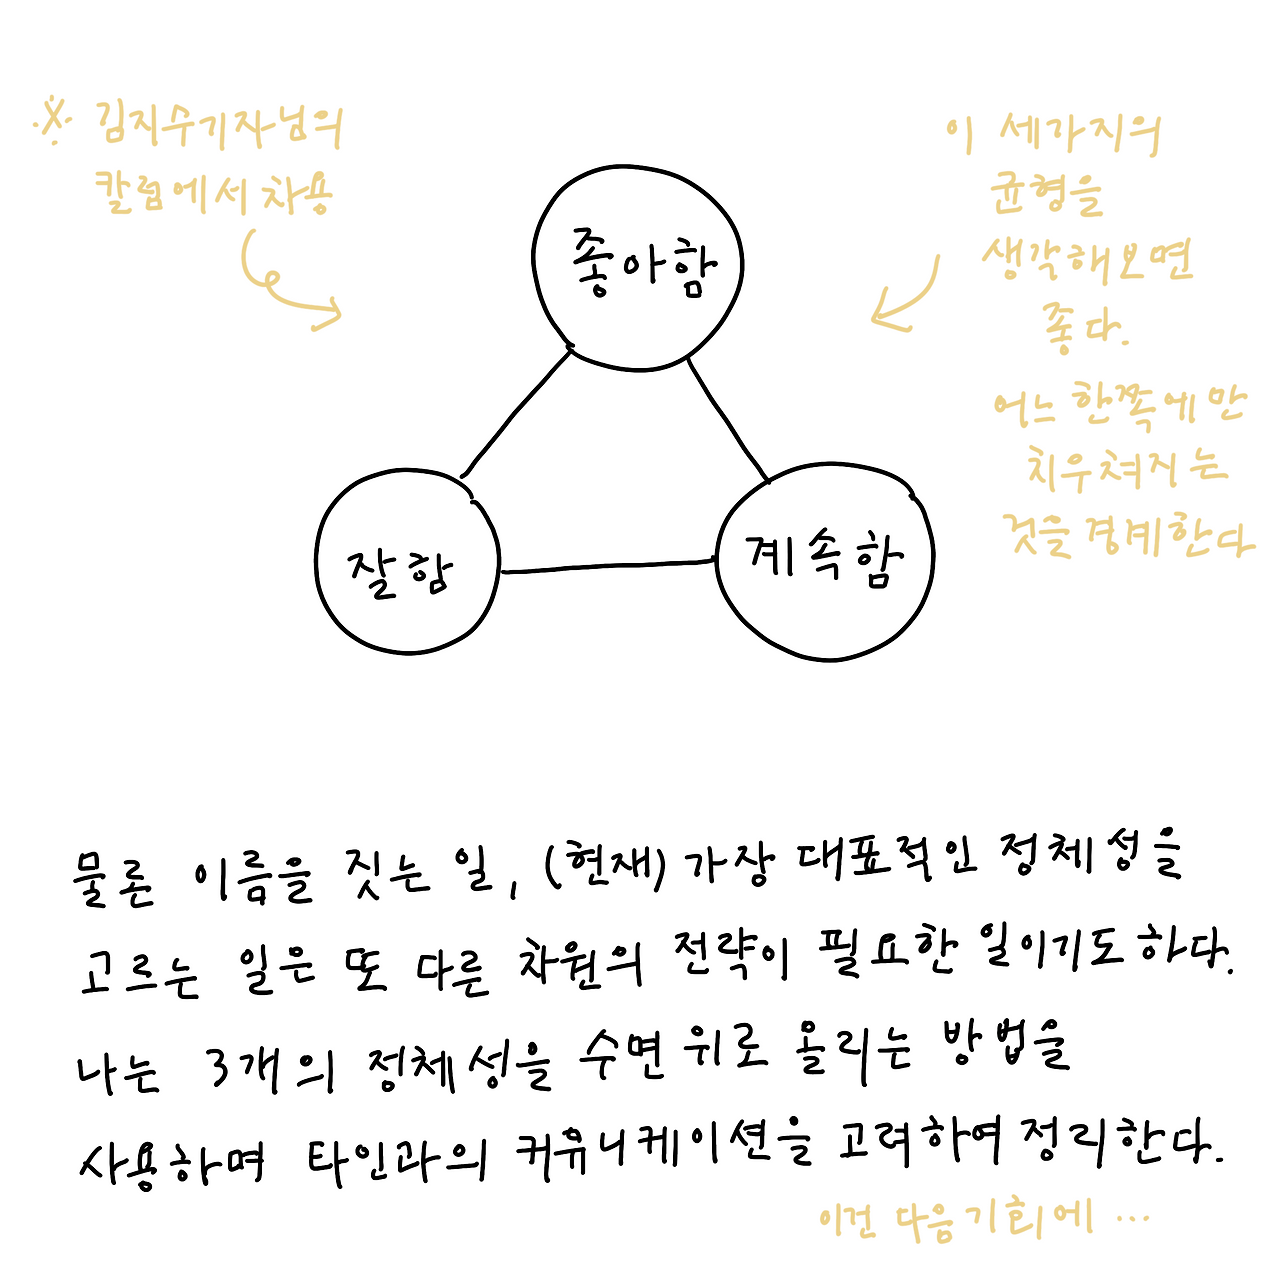 ※ 김지수기자님의
칼럼에서 차용
이 세가지의
균형을
생각해보면
좋다.
어느 한쪽에만
치우쳐지는
것을 경계한다
좋아함
잘함
계속함
물론 이름을 짓는 일, (현재) 가장 대표적인 정체성을
고르는 일은 또 다른 차원의 전략이 필요한 일이기도하다.
나는 3개의 정체성을 수면 위로 올리는 방법을
사용하며 타인과의 커뮤니케이션을 고려하여 정리한다.
이건 다음기회에 …